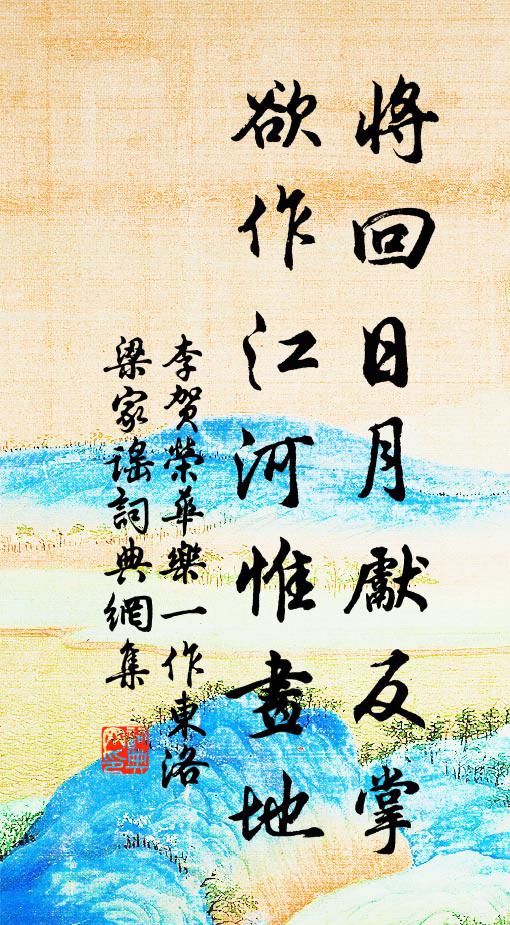 將回日月獻反掌
欲作江河惟畫地
李賀榮華樂一作東洛
梁家謠詞典網集